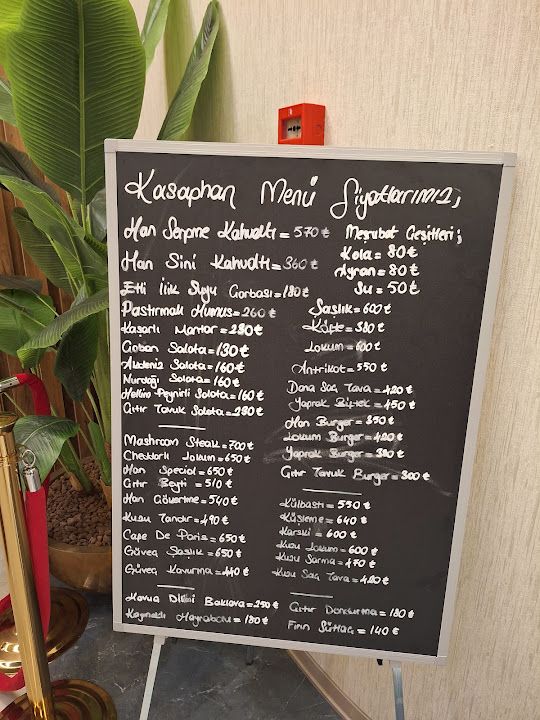 Kasaphan Menü Fiyatlarımız;
Han Serpme Kahvaltı = 570 ₺
Han Sini Kahvaltı = 360 ₺
Etli İlik Suyu Çorbası = 180 ₺
Pastırmalı Humus = 260 ₺
Kaşarlı Mantar = 280 ₺
Çoban Salata = 130 ₺
Akdeniz Salata = 160 ₺
Nurdağı Salata = 160 ₺
Hellim Peynirli Salata = 160 ₺
Çıtır Tavuk Salata = 280 ₺
Mashroom Steak = 700 ₺
Cheddarlı Lokum = 650 ₺
Han Special = 650 ₺
Çıtır Beyti = 510 ₺
Han Gövertme = 540 ₺
Kuzu Tandır = 490 ₺
Cafe De Paris = 650 ₺
Güveç Şaşlık = 650 ₺
Güveç Kavurma = 440 ₺
Havuç Dilimi Baklava = 250 ₺
Kaymaklı Hayrabolu = 180 ₺
Meşrubat Çeşitleri;
Kola = 80 ₺
Ayran = 80 ₺
Su = 50 ₺
Şaşlık = 600 ₺
Köfte = 380 ₺
Lokum = 600 ₺
Antrikot = 550 ₺
Dana Saç Tava = 420 ₺
Yaprak Biftek = 450 ₺
Han Burger = 350 ₺
Lokum Burger = 420 ₺
Yaprak Burger = 380 ₺
Çıtır Tavuk Burger = 300 ₺
Külbastı = 550 ₺
Küşleme = 640 ₺
Karski = 600 ₺
Kuzu Lokum = 600 ₺
Kuzu Sarma = 470 ₺
Kuzu Saç Tava = 420 ₺
Çıtır Dondurma = 180 ₺
Fırın Sütlaç = 140 ₺